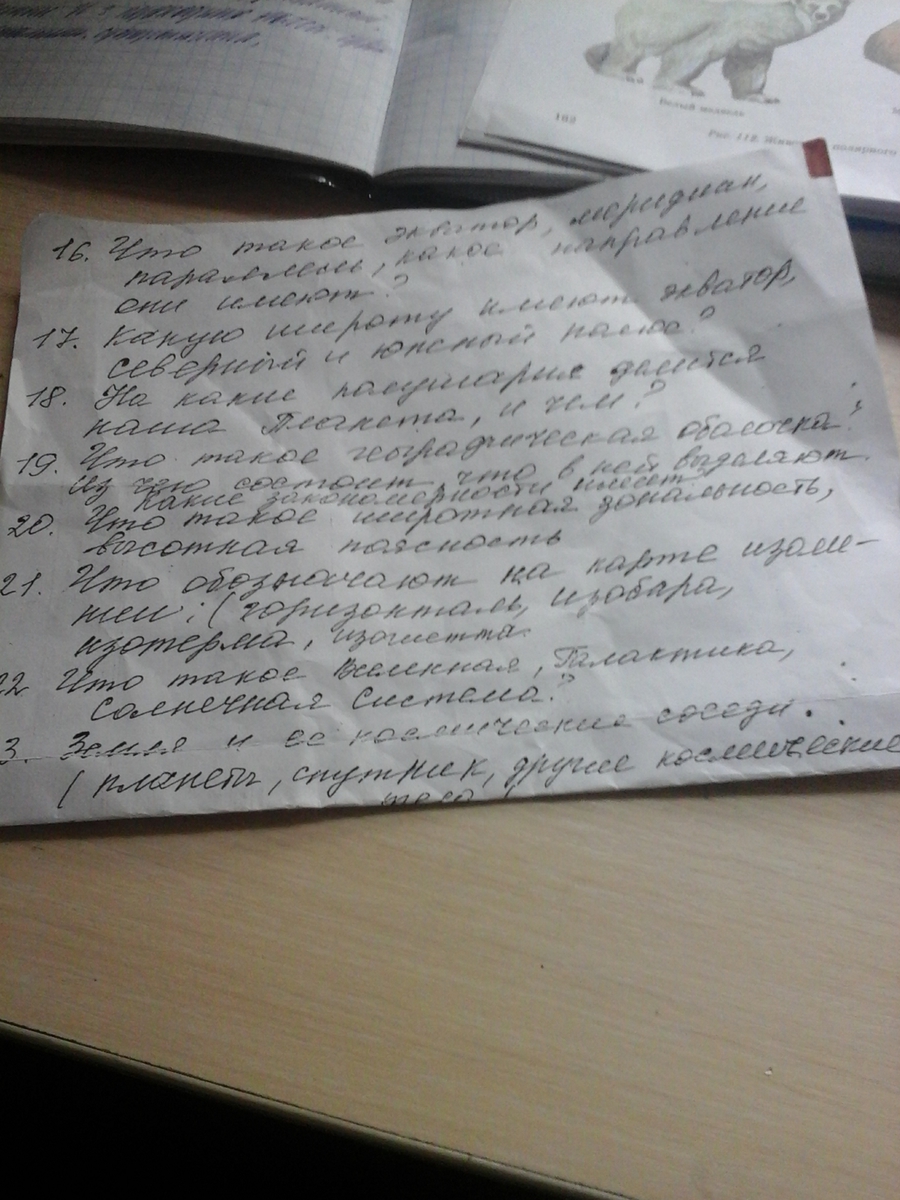 162
Белый медведь
Рис. 118. полярного
16. Что такое экватор, меридиан,
параллель, какое направление
они имеют?
17. Какую широту имеют экватор,
северный и южный полюс?
18. На какие полушария делится
наша Планета, и чем?
19. Что такое географическая оболочка?
Из чего состоит, что в ней выделяют.
Какие закономерности имеет
20. Что такое широтная зональность,
высотная поясность
21. Что обозначают на карте изоли-
нии: (горизонталь, изобара,
изотерма,
22 Что такое Вселенная, Галактика,
солнечная система?
3. Земля и ее космические соседи.
(планеты, спутник, другие космические
тела